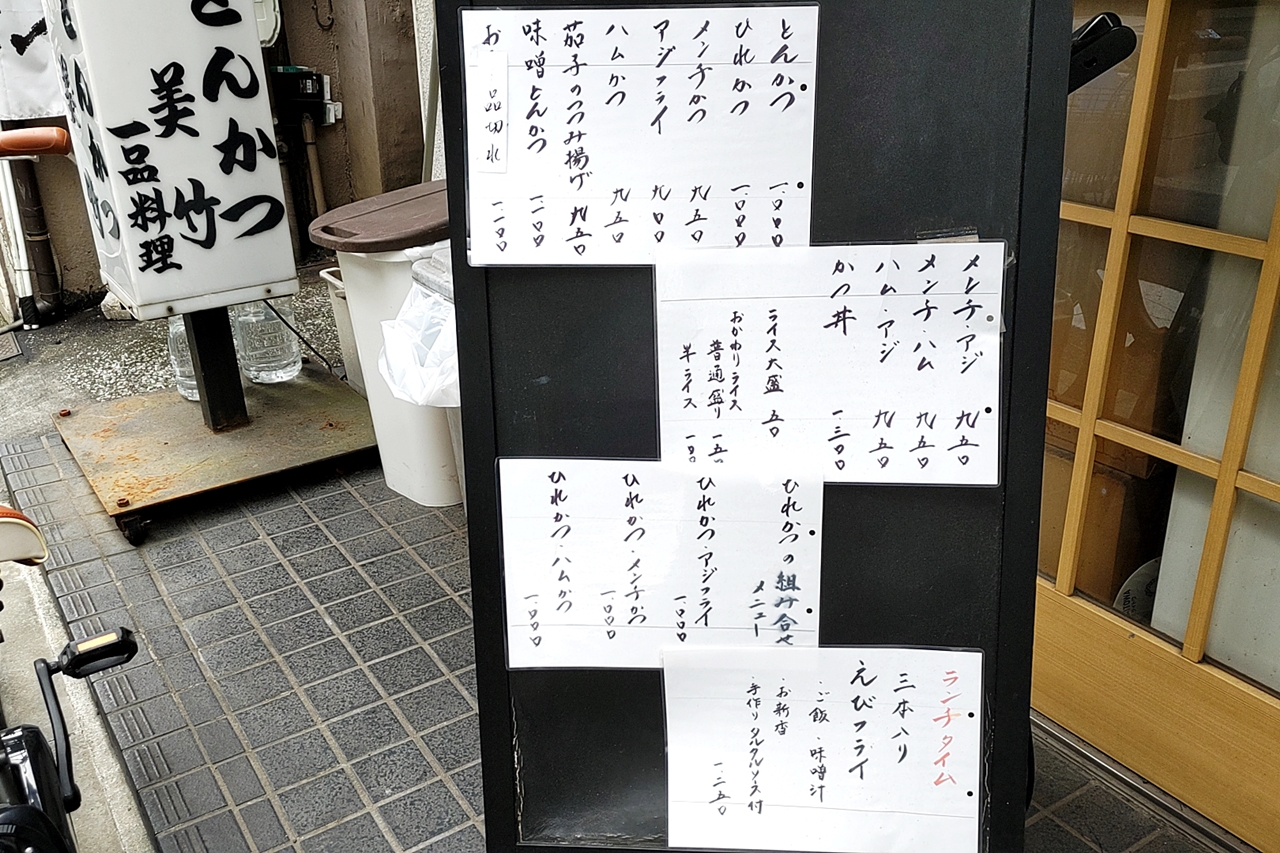 とんかつ
美竹
一品料理
とんかつ 一、〇〇〇
ひれかつ 一、〇〇〇
メンチかつ 九五〇
アジフライ 九〇〇
ハムかつ 九五〇
茄子のつつみ揚げ 九五〇
味噌とんかつ 一、一〇〇
お 品切れ 一、一〇〇
メンチ・アジ 九五〇
メンチ・ハム 九五〇
ハム・アジ 九五〇
かつ丼 一、三〇〇
ライス大盛 五〇
おかわりライス
普通盛り 一五〇
半ライス 一〇〇
ひれかつの組み合せ
メニュー
ひれかつ・アジフライ 一、〇〇〇
ひれかつ・メンチかつ 一、〇〇〇
ひれかつ・ハムかつ 一、〇〇〇
ランチタイム
三本入り
えびフライ
・ご飯・味噌汁
・お新香
・手作りタルタルソース付
一、二五〇